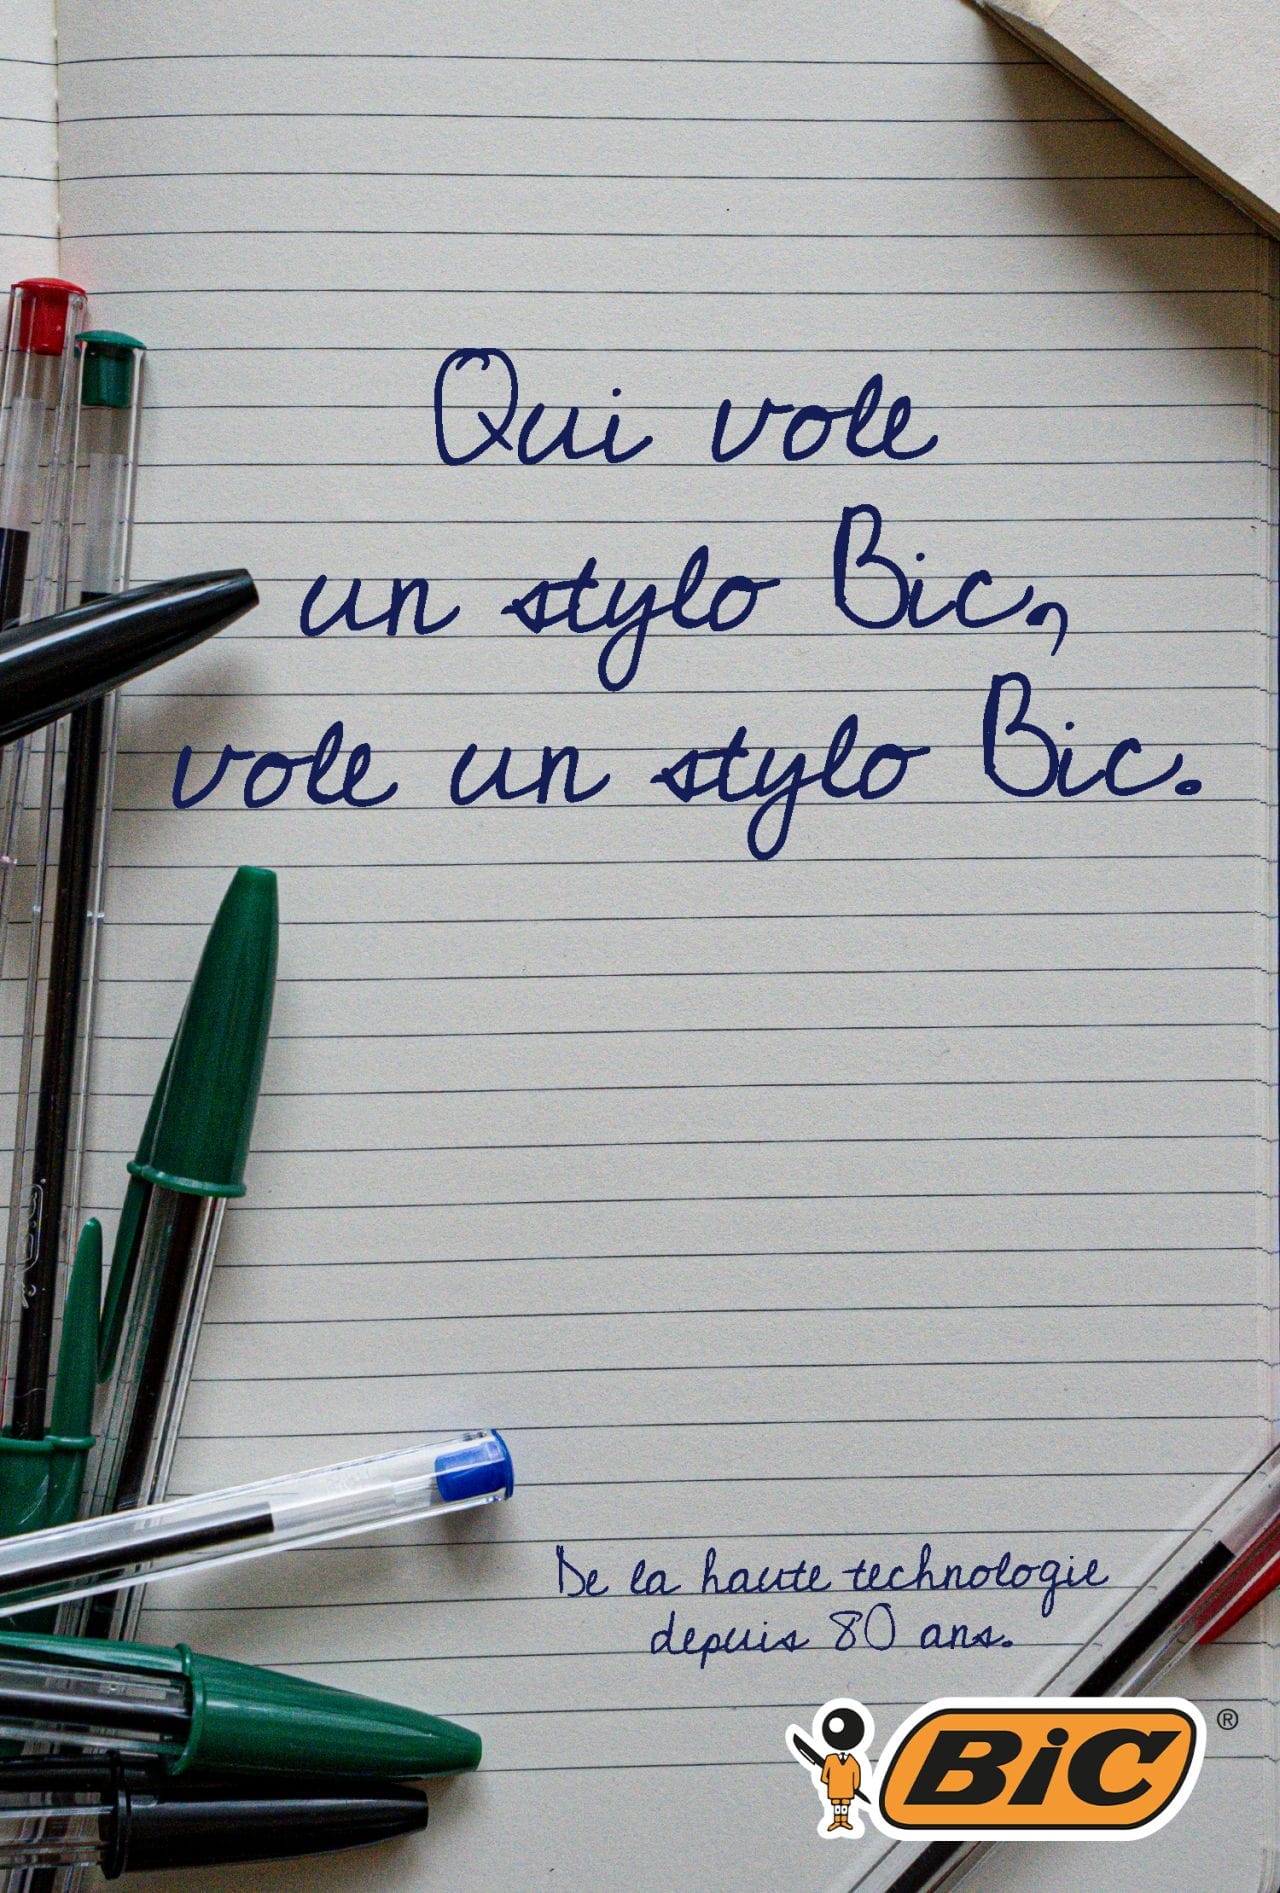 Qui vole
un stylo Bic,
vole un stylo Bic.
De la haute technologie
depuis 80 ans.
BiC ®